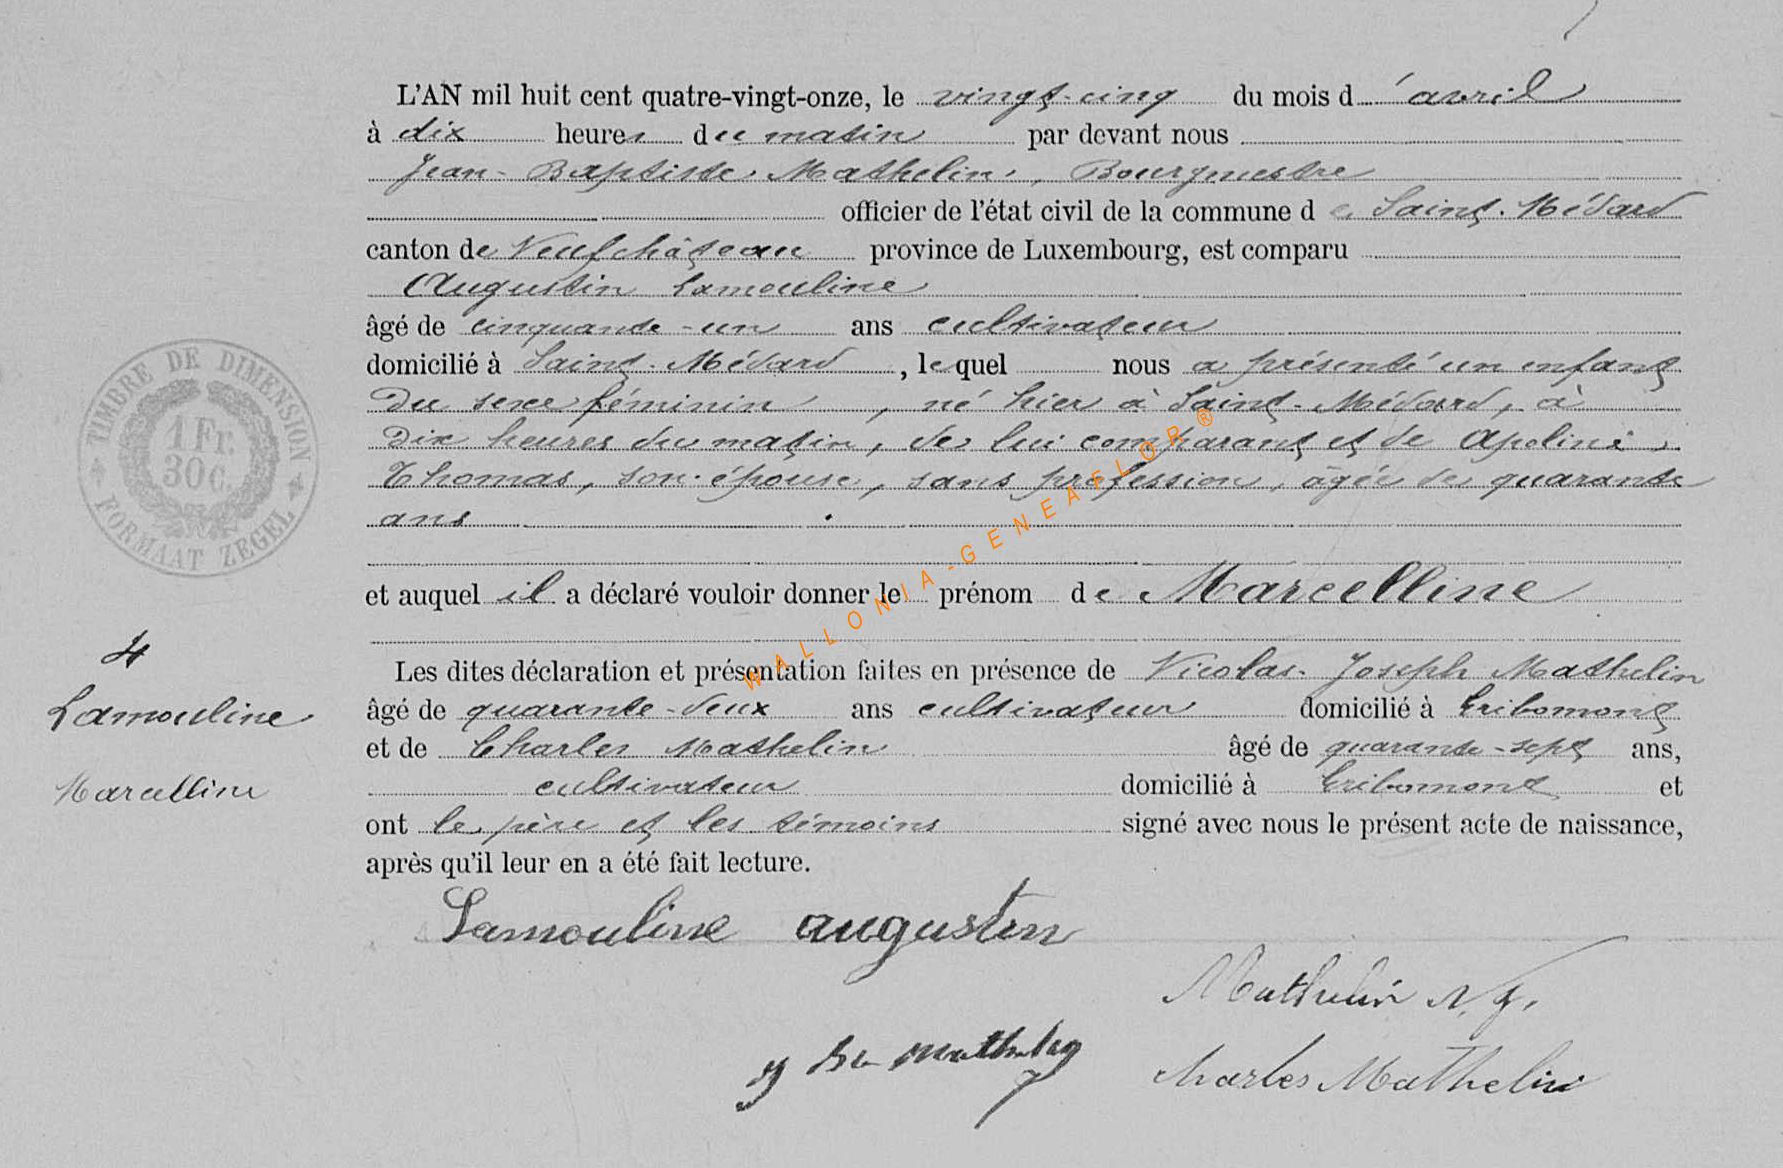 L'AN mil huit cent quatre-vingt-onze, le vingt-cinq du mois d'avril
à dix heures du matin par devant nous
Jean-Baptiste Mathelin, Bourgmestre
officier de l'état civil de la commune de Saint-Médard
canton de Neufchâteau province de Luxembourg, est comparu
Augustin Lamouline
âgé de cinquante-un ans cultivateur
domicilié à Saint-Médard, lequel nous a présenté un enfant
du sexe féminin, né hier à Saint-Médard, à
dix heures du matin, de lui comparant et de Apoline
Thomas, son épouse, sans profession, âgée de quarante
ans
et auquel il a déclaré vouloir donner le prénom de Marcelline
Les dites déclaration et présentation faites en présence de Nicolas-Joseph Mathelin
âgé de quarante-deux ans cultivateur domicilié à Gribomont
et de Charles Mathelin âgé de quarante-sept ans,
cultivateur domicilié à Gribomont et
ont le père et les témoins signé avec nous le présent acte de naissance,
après qu'il leur en a été fait lecture.
Lamouline augustin
Mathelin N. J.
J Bte Mathelin
Charles Mathelin
4
Lamouline
Marcelline
TIMBRE DE DIMENSION
1 Fr.
30 C.
FORMAAT ZEGEL
WALLONIA-GENEAFLOR®